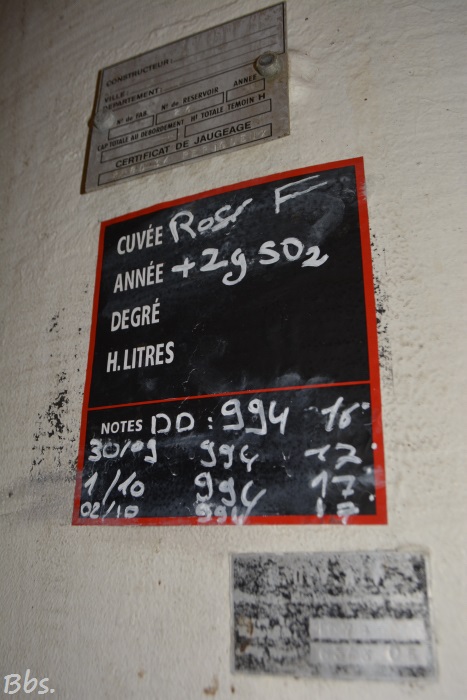 CONSTRUCTEUR:
VILLE:
DÉPARTEMENT
N° de FAB. N° de RESERVOIR ANNÉE
CAP TOTALE AU DEBORDEMENT Hr TOTALE TEMOIN H
CERTIFICAT DE JAUGEAGE
CUVÉE Rosé F
ANNÉE +2g SO2
DEGRÉ
H.LITRES
NOTES DD : 994 16°
30/09 994 17°
1/10 994 17°
02/10 994 17
Bbs.